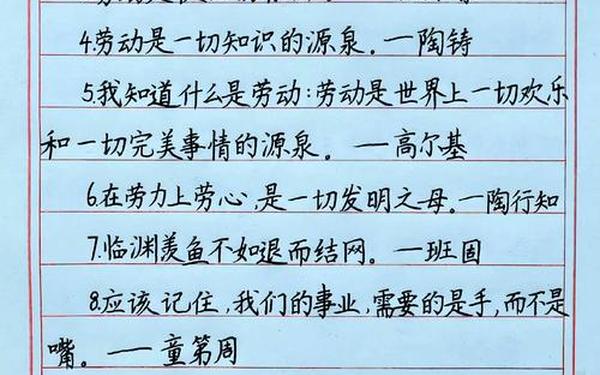 4.劳动是一切知识的源泉。—陶铸
5.我知道什么是劳动:劳动是世界上一切欢乐
和一切完美事情的源泉。—高尔基
6.在劳力上劳心,是一切发明之母。—陶行知
7.临渊羡鱼不如退而结网。—班固
8.应该记住,我们的事业,需要的是手,而不是
嘴。——童第周